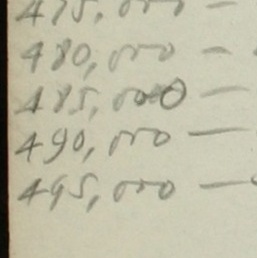 475,000 —
480,000 —
485,000 —
490,000 —
495,000 —